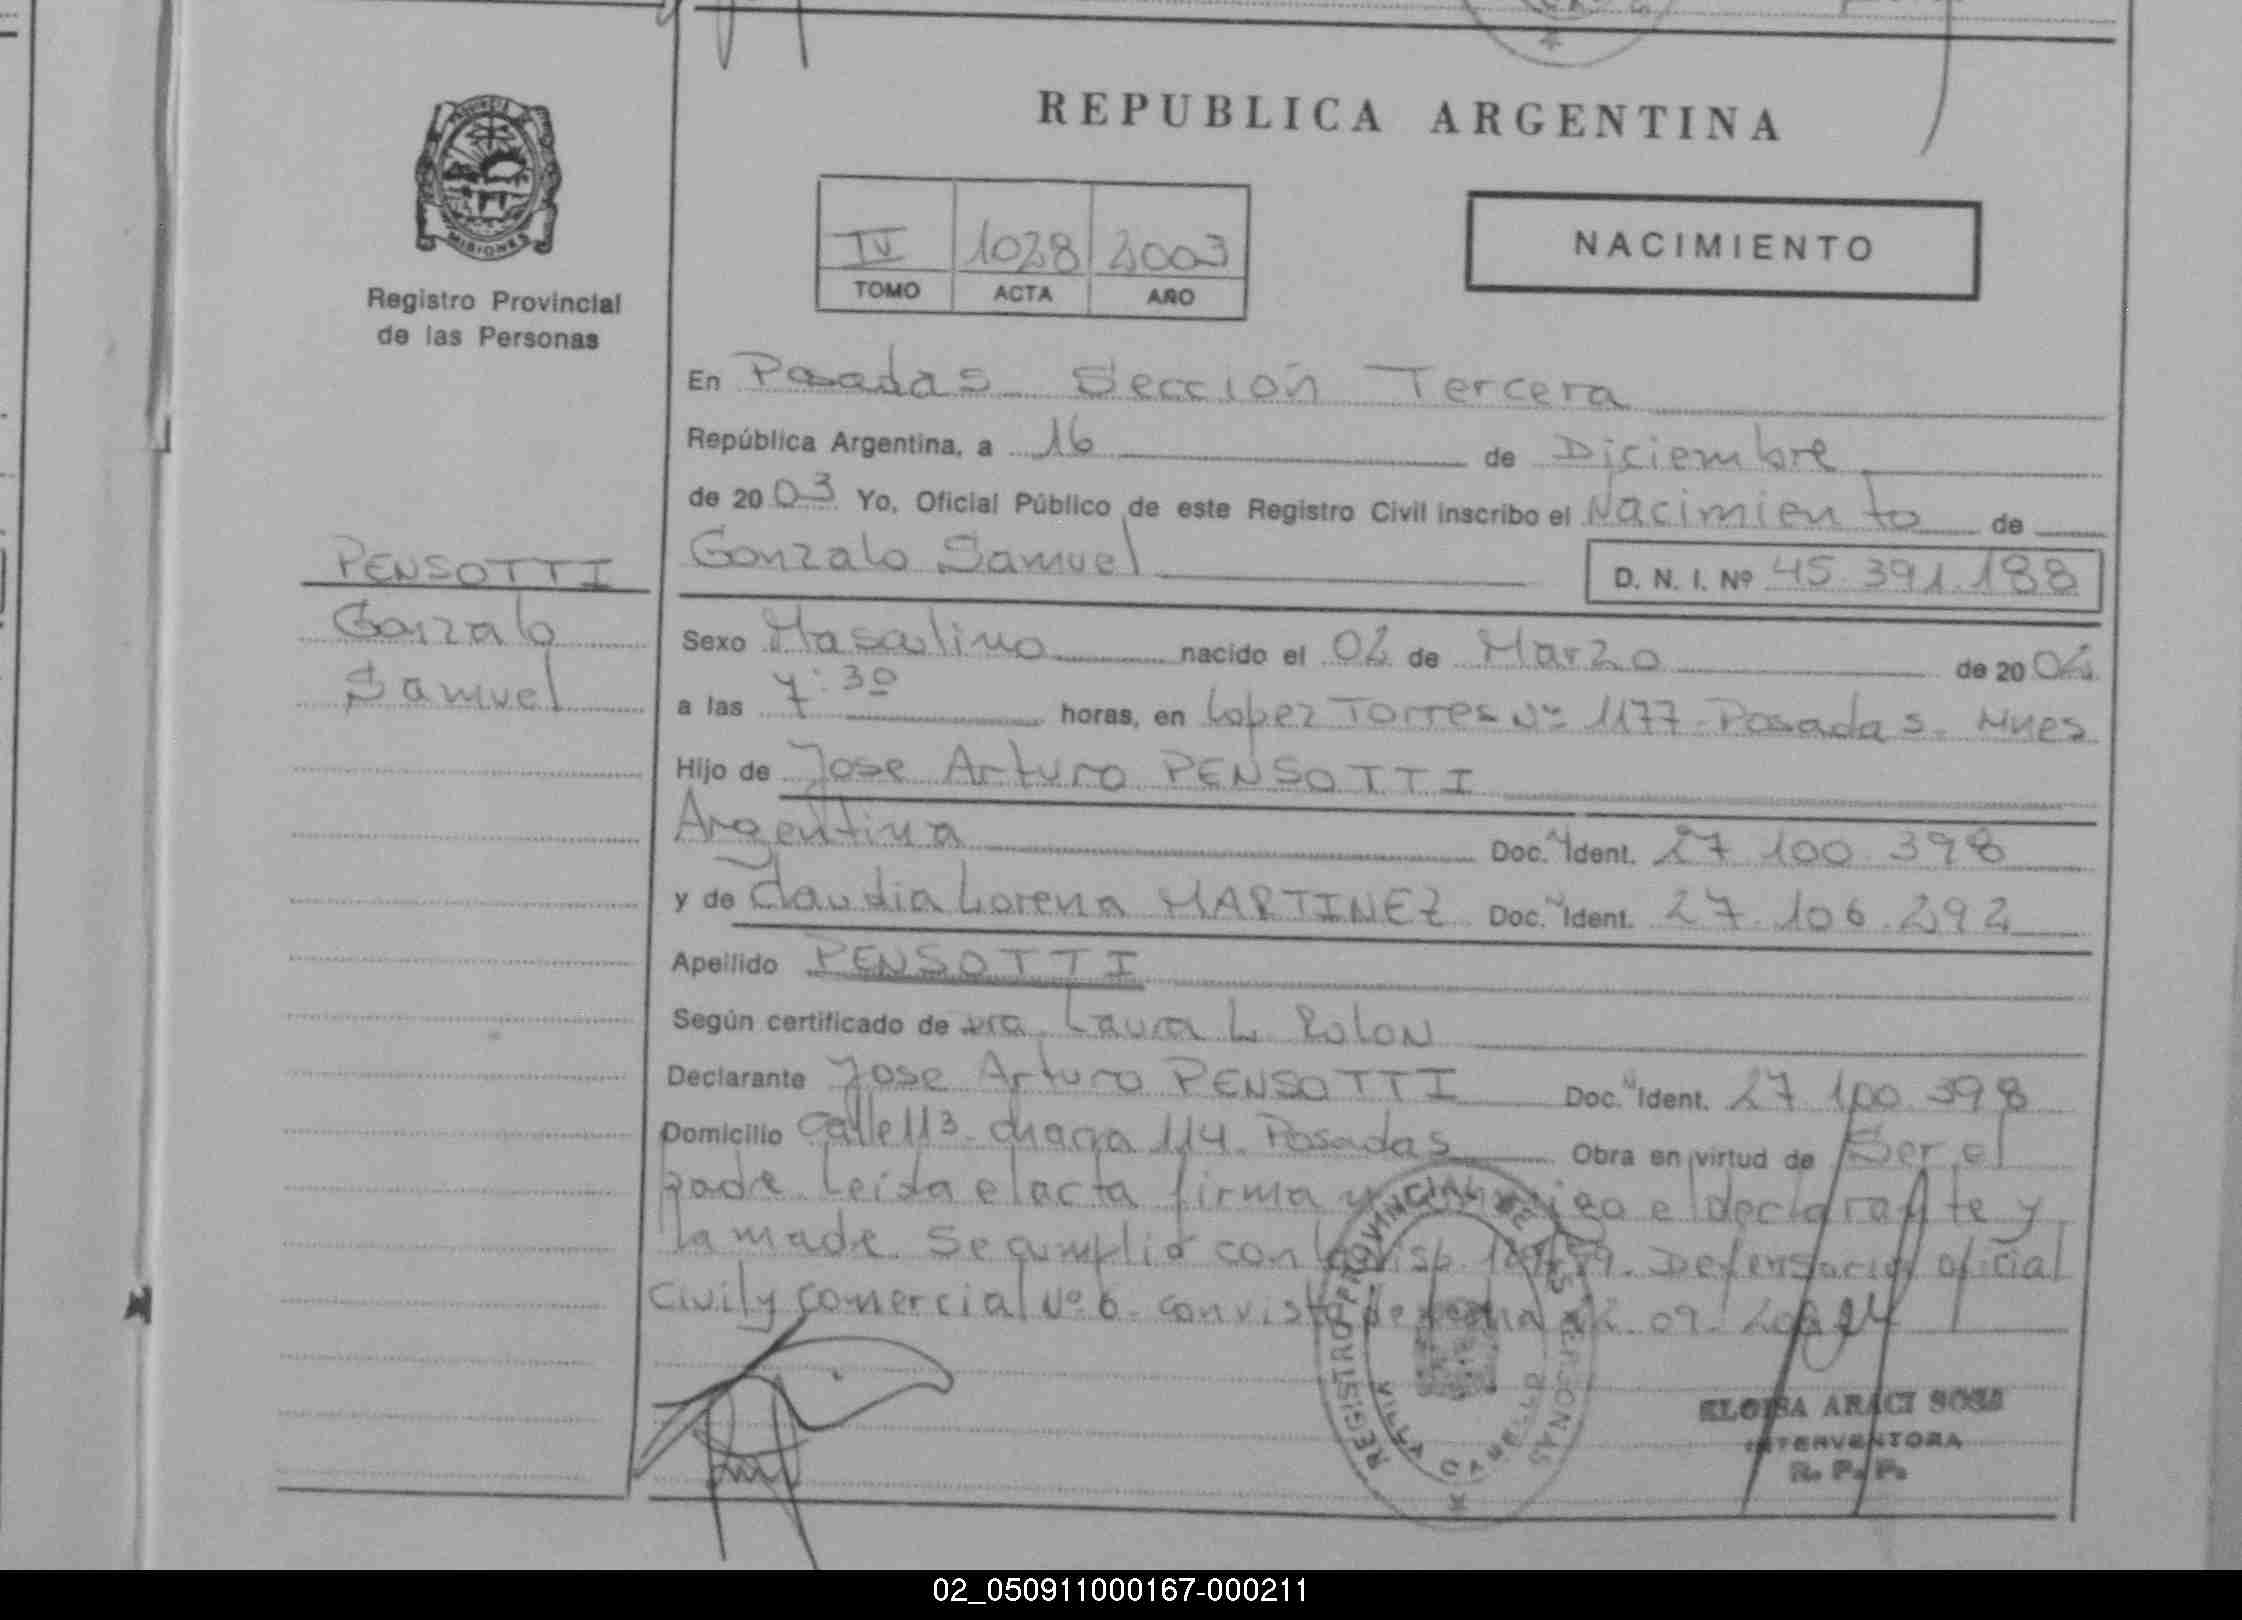 REPUBLICA ARGENTINA
PROVINCIA
MISIONES
Registro Provincial
de las Personas
IV 1028 2003
TOMO ACTA AÑO
NACIMIENTO
En Posadas Sección Tercera
República Argentina, a 16 de Diciembre
de 2003 Yo, Oficial Público de este Registro Civil inscribo el Nacimiento de
Gonzalo Samuel D. N. I. Nº 45.391.188
PENSOTTI
Gonzalo
Samuel
Sexo Masculino nacido el 02 de Marzo de 2002
a las 7:30 horas, en Lopez Torres Nº 1177. Posadas. Mnes
Hijo de Jose Arturo PENSOTTI
Argentina Doc. Ident. 27.100.398
y de Claudia Lorena MARTINEZ Doc. Ident. 27.106.292
Apellido PENSOTTI
Según certificado de Dra. Laura L. Rolon
Declarante Jose Arturo PENSOTTI Doc. Ident. 27.100.398
Domicilio Calle 113. chacra 114. Posadas Obra en virtud de Ser el
padre. Leida el acta firma el declarante y
la madre. Se cumplió con Defensoria oficial
Civil y comercial Nº 6. con vista de fecha 09.
REGISTRO PROVINCIAL DE LAS PERSONAS
VILLA CABELLO
ELOISA ARACI SOSA
INTERVENTORA
R. P. P.
02_050911000167-000211